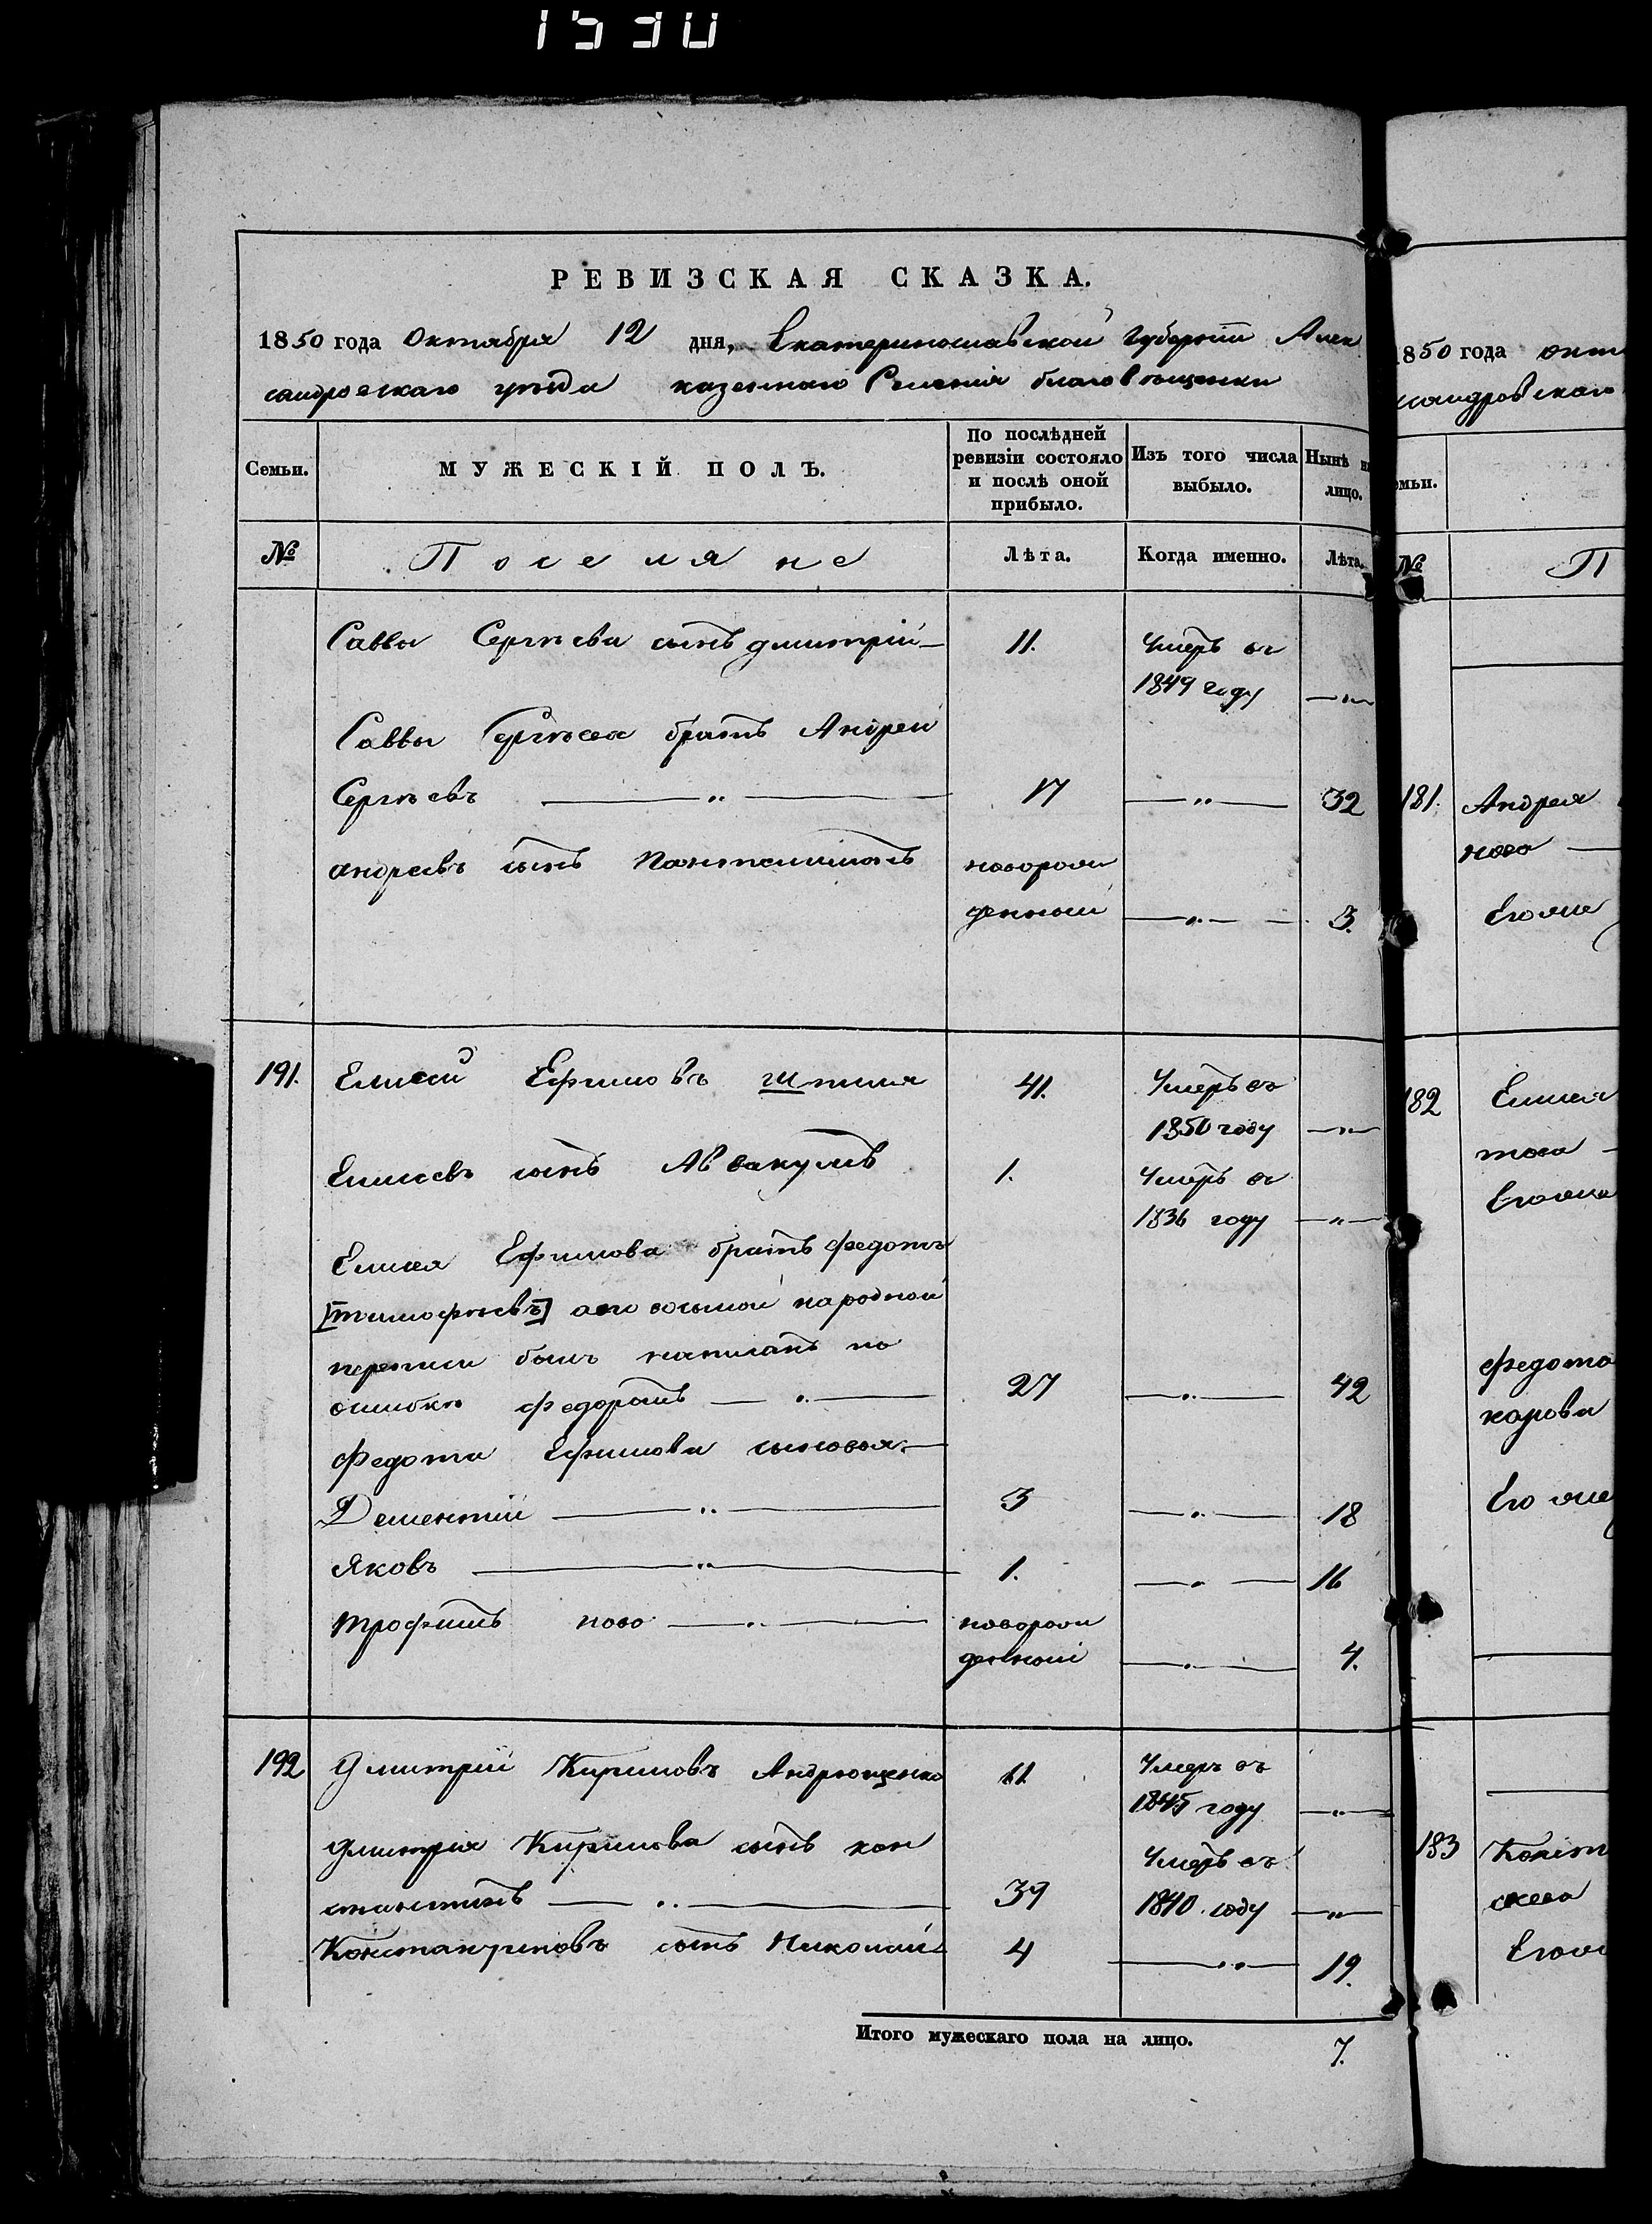 1530
РЕВИЗСКАЯ СКАЗКА.
1850 года Октября 12 дня, Екатеринославской губернии Алек
сандровскаго уѣзда казеннаго Селенія благовѣщенки
Семьи. МУЖЕСКІЙ ПОЛЪ. По послѣдней ревизіи состояло и послѣ оной прибыло. Изъ того числа выбыло. Нынѣ на лицо.
№ Поселяне Лѣта. Когда именно. Лѣта.
Саввы Сергѣева сынъ дмитрій 11. Умеръ въ
1849 году
Саввы Сергѣева братъ Андрей
Сергѣевъ 17 32
андреевъ сынъ Пантелимонъ новорож
денный 3.
191. Елисей Ефимовъ 41. Умеръ въ
1850 году
Елисѣевъ сынъ Аввакумъ 1. Умеръ въ
1836 году
Елисея Ефимова братъ федотъ
[тимофѣевъ] а по восьмой народной
переписи былъ написанъ по
ошибкѣ федоромъ 27 42
федота Ефимова сыновья
Дементій 3 18
Яковъ 1. 16
трофимъ ново новорож
денный 4.
192 Дмитрій Кириловъ Андрющенко 61 Умеръ въ
1845 году
Дмитрія Кирилова сынъ кон
стантинъ 39 Умеръ въ
1840 году
Константиновъ сынъ Николай 4 19.
Итого мужескаго пола на лицо. 7.
1850 года окт
ксандровскаго
емьи.
№ П
181. Андрея
нова
Его же
182 Елисея
това
Его же
федота
карова
Его же
183 Конст
Его же